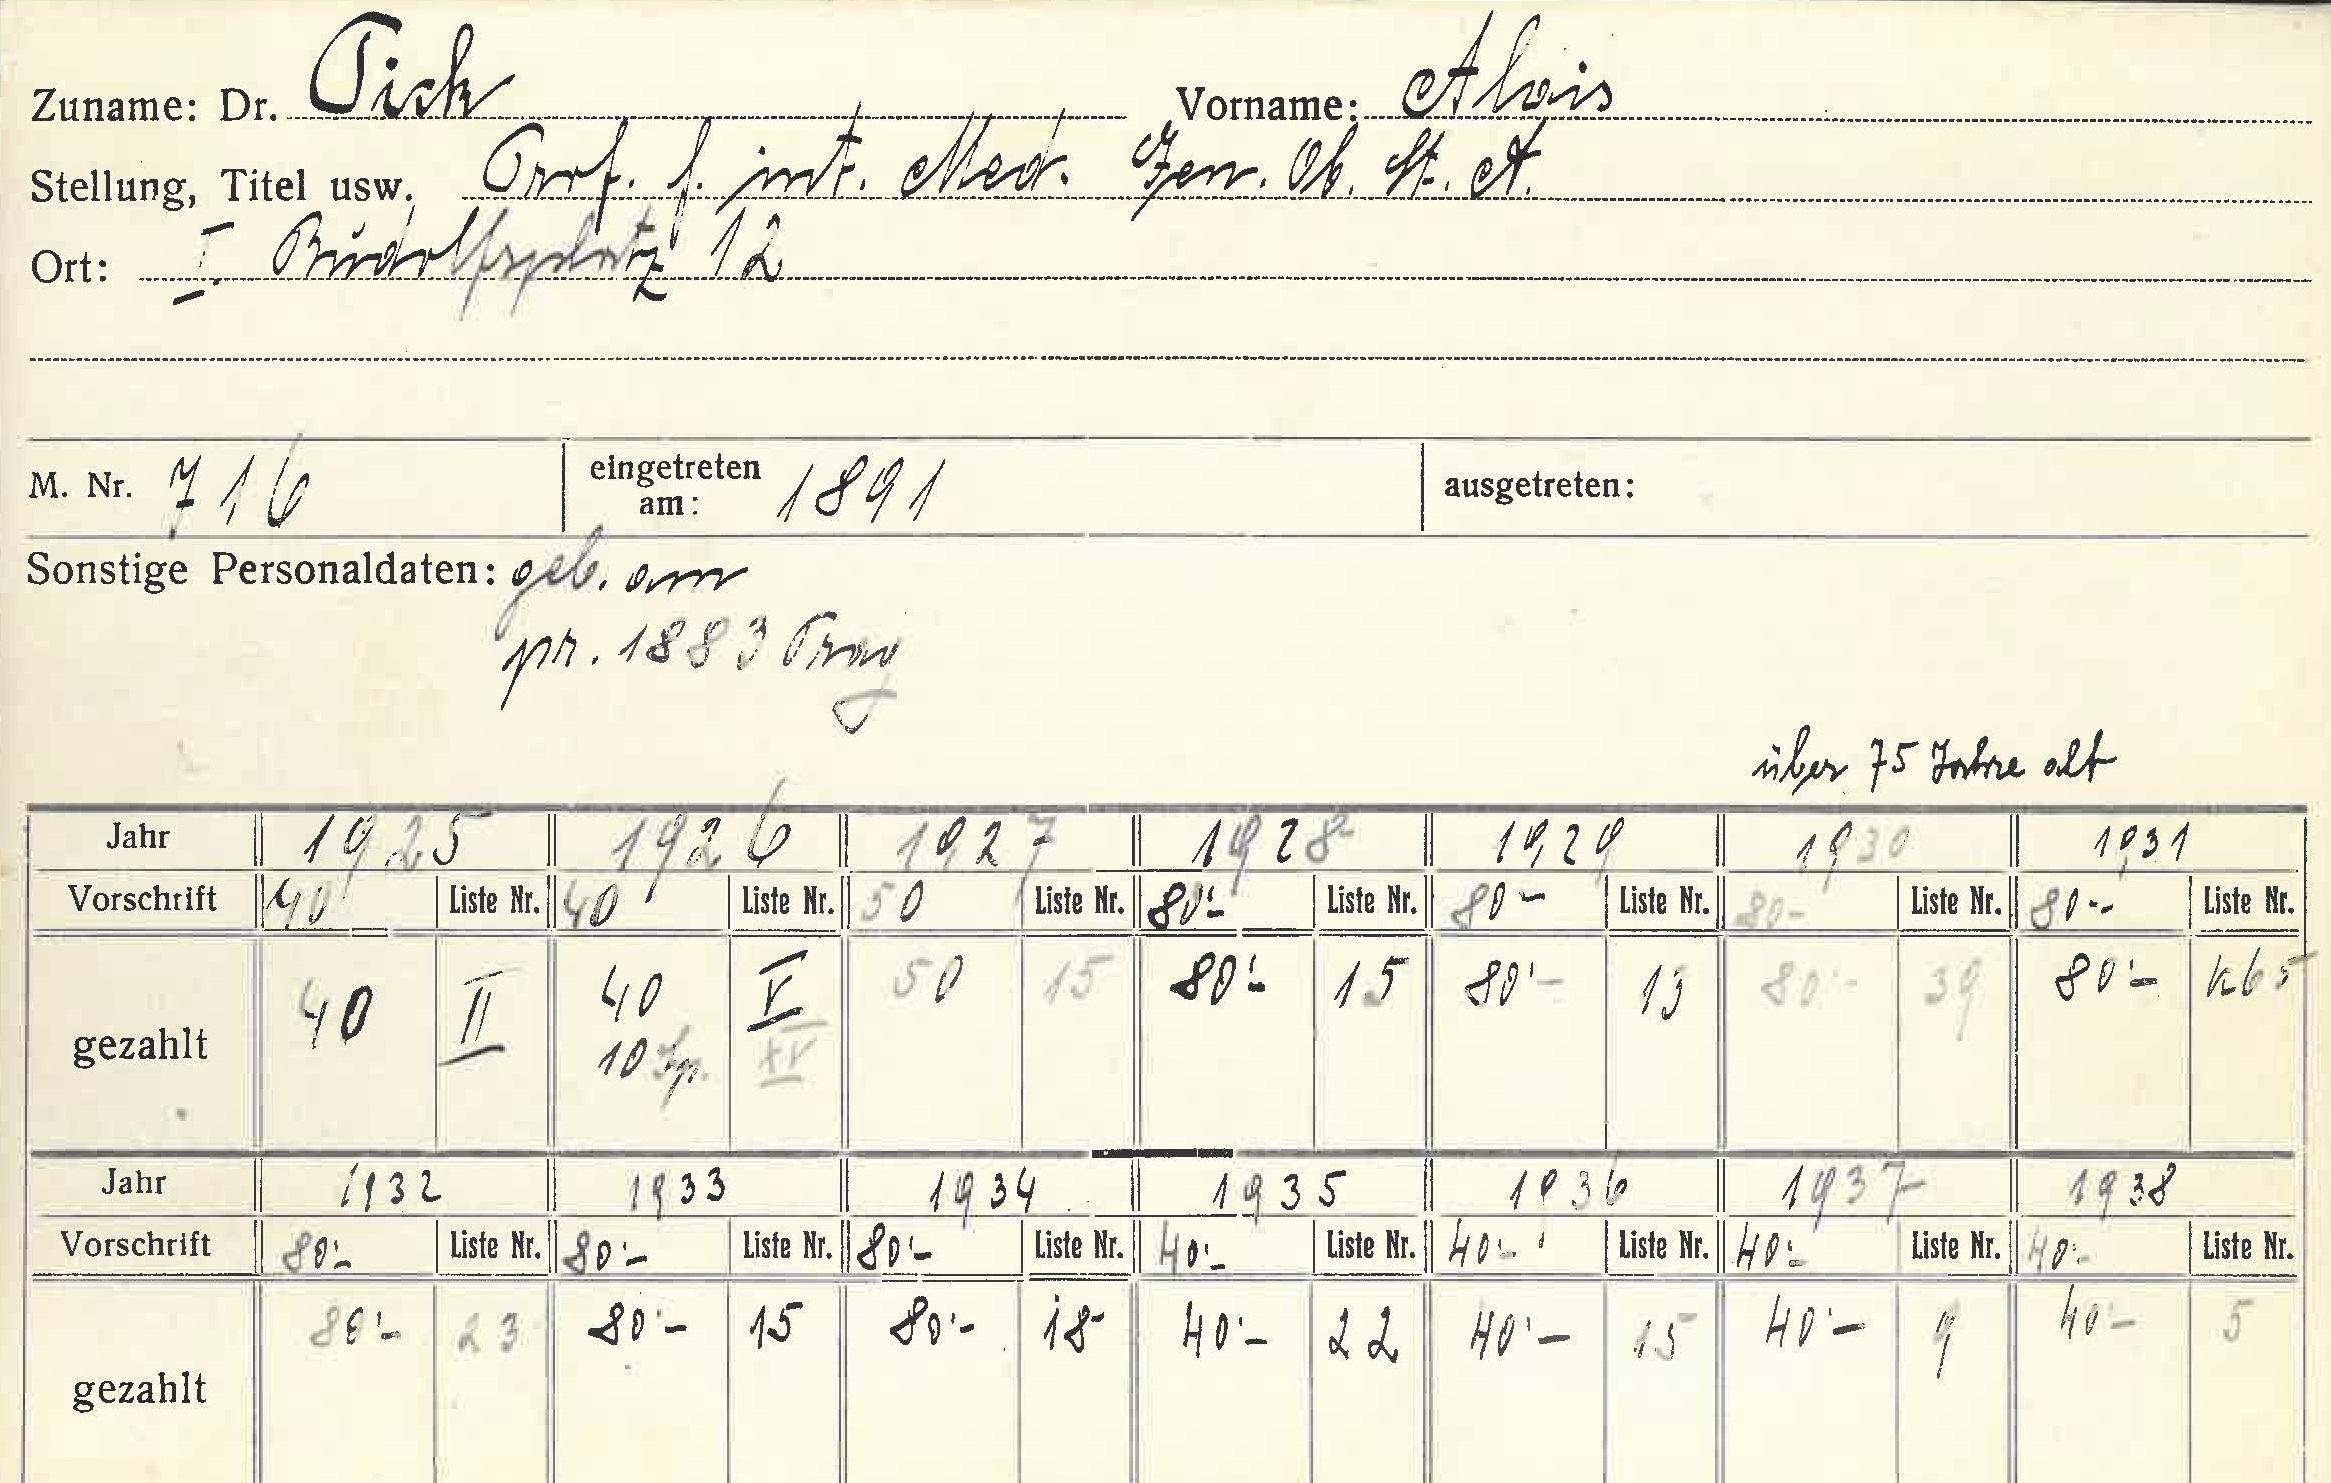 Zuname: Dr. Pick Vorname: Alois
Stellung, Titel usw. Prof. f. int. Med. Gen. Ob. St. A.
Ort: I. Rudolfsplatz 12
M. Nr. 716 eingetreten am: 1891 ausgetreten:
Sonstige Personaldaten: geb. am
pr. 1883 Prag
über 75 Jahre alt
Jahr 1925 1926 1927 1928 1929 1930 1931
Vorschrift 40 Liste Nr. 40 Liste Nr. 50 Liste Nr. 80'- Liste Nr. 80- Liste Nr. 80- Liste Nr. 80-- Liste Nr.
gezahlt 40 II 40 V 50 15 80'- 15 80'- 13 80'- 39 80'- K65
10 Sp. XV
Jahr 1932 1933 1934 1935 1936 1937 1938
Vorschrift 80'- Liste Nr. 80'- Liste Nr. 80'- Liste Nr. 40'- Liste Nr. 40'- Liste Nr. 40'- Liste Nr. 40'- Liste Nr.
gezahlt 80'- 23 80'- 15 80'- 18 40'- 22 40'- 15 40'- 9 40'- 5